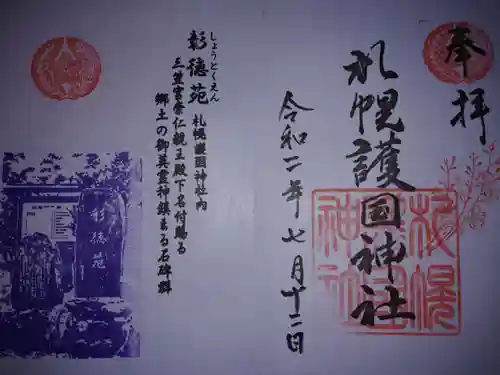 奉拝
札幌護国神社
令和二年七月十二日
しょうとくえん
彰徳苑 札幌護国神社内
三笠宮崇仁親王殿下名付賜る
郷土の御英霊神鎮まる石碑群
彰徳苑
札幌
護国
神社